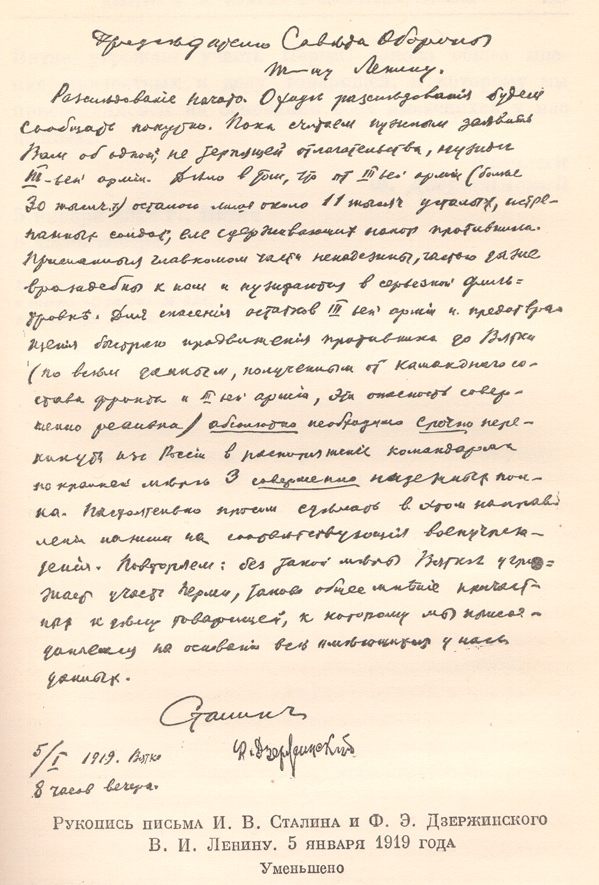 Председателю Совета Обороны
т-щу Ленину.
Разследование начато. О ходе разследования будем
сообщать попутно. Пока считаем нужным заявить
Вам об одной, не терпящей отлагательства, нужде
III-ьей армии. Дело в том, что от III ьей армии (более
30 тысяч) осталось лишь около 11 тысяч усталых, истре-
панных солдат, еле сдерживающих напор противника.
Присланныя главкомом части ненадежны, частью даже
враждебны к нам и нуждаются в серьезной филь-
тровке. Для спасения остатков III ьей армии и предотвра-
щения быстраго продвижения противника до Вятки
(по всем данным, полученным от командного со-
става фронта и III ьей армии, эта опасность совер-
шенно реальна) абсолютно необходимо срочно пере-
кинуть из России в распоряжение командарма
по крайней мере 3 совершенно надежных пол-
ка. Настоятельно просим сделать в этом направ-
лении нажим на соответствующия военучреж-
дения. Повторяем: без такой меры Вятке угро-
жает участь Перми, таково общее мнение причаст-
ных к делу товарищей, к которому мы присое-
диняемся на основании всех имеющихся у нас
данных.
Сталин
5/I 1919. Вятка
Ф. Дзержинский
8 часов вечера.
Рукопись письма И. В. Сталина и Ф. Э. Дзержинского
В. И. Ленину. 5 января 1919 года
Уменьшено